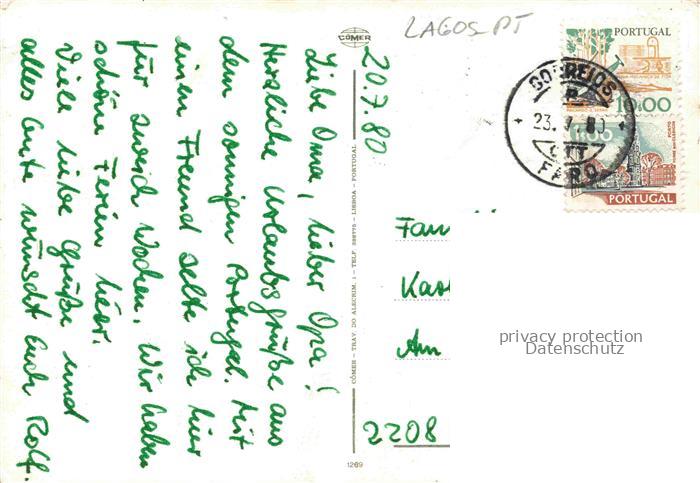 LAGOS PT
CÔMER
20.7.80
Liebe Oma, lieber Opa!
Herzliche Urlaubsgrüße aus
dem sonnigen Portugal. Mit
einem Freund zelte ich hier
für zwei Wochen. Wir haben
schöne Ferien hier.
Viele liebe Grüße und
alles Gute wünscht Euch Rolf.
CÔMER — TRAV. DO ALECRIM, 1 — TELF. 328775 — LISBOA — PORTUGAL
1269
PORTUGAL
10.00
CORREIOS
23.
80
CTT
FARO
1$00
PORTO
TORRE DOS CLÉRIGOS
PORTUGAL
Fam
Kast
Am
2208
privacy protection
Datenschutz